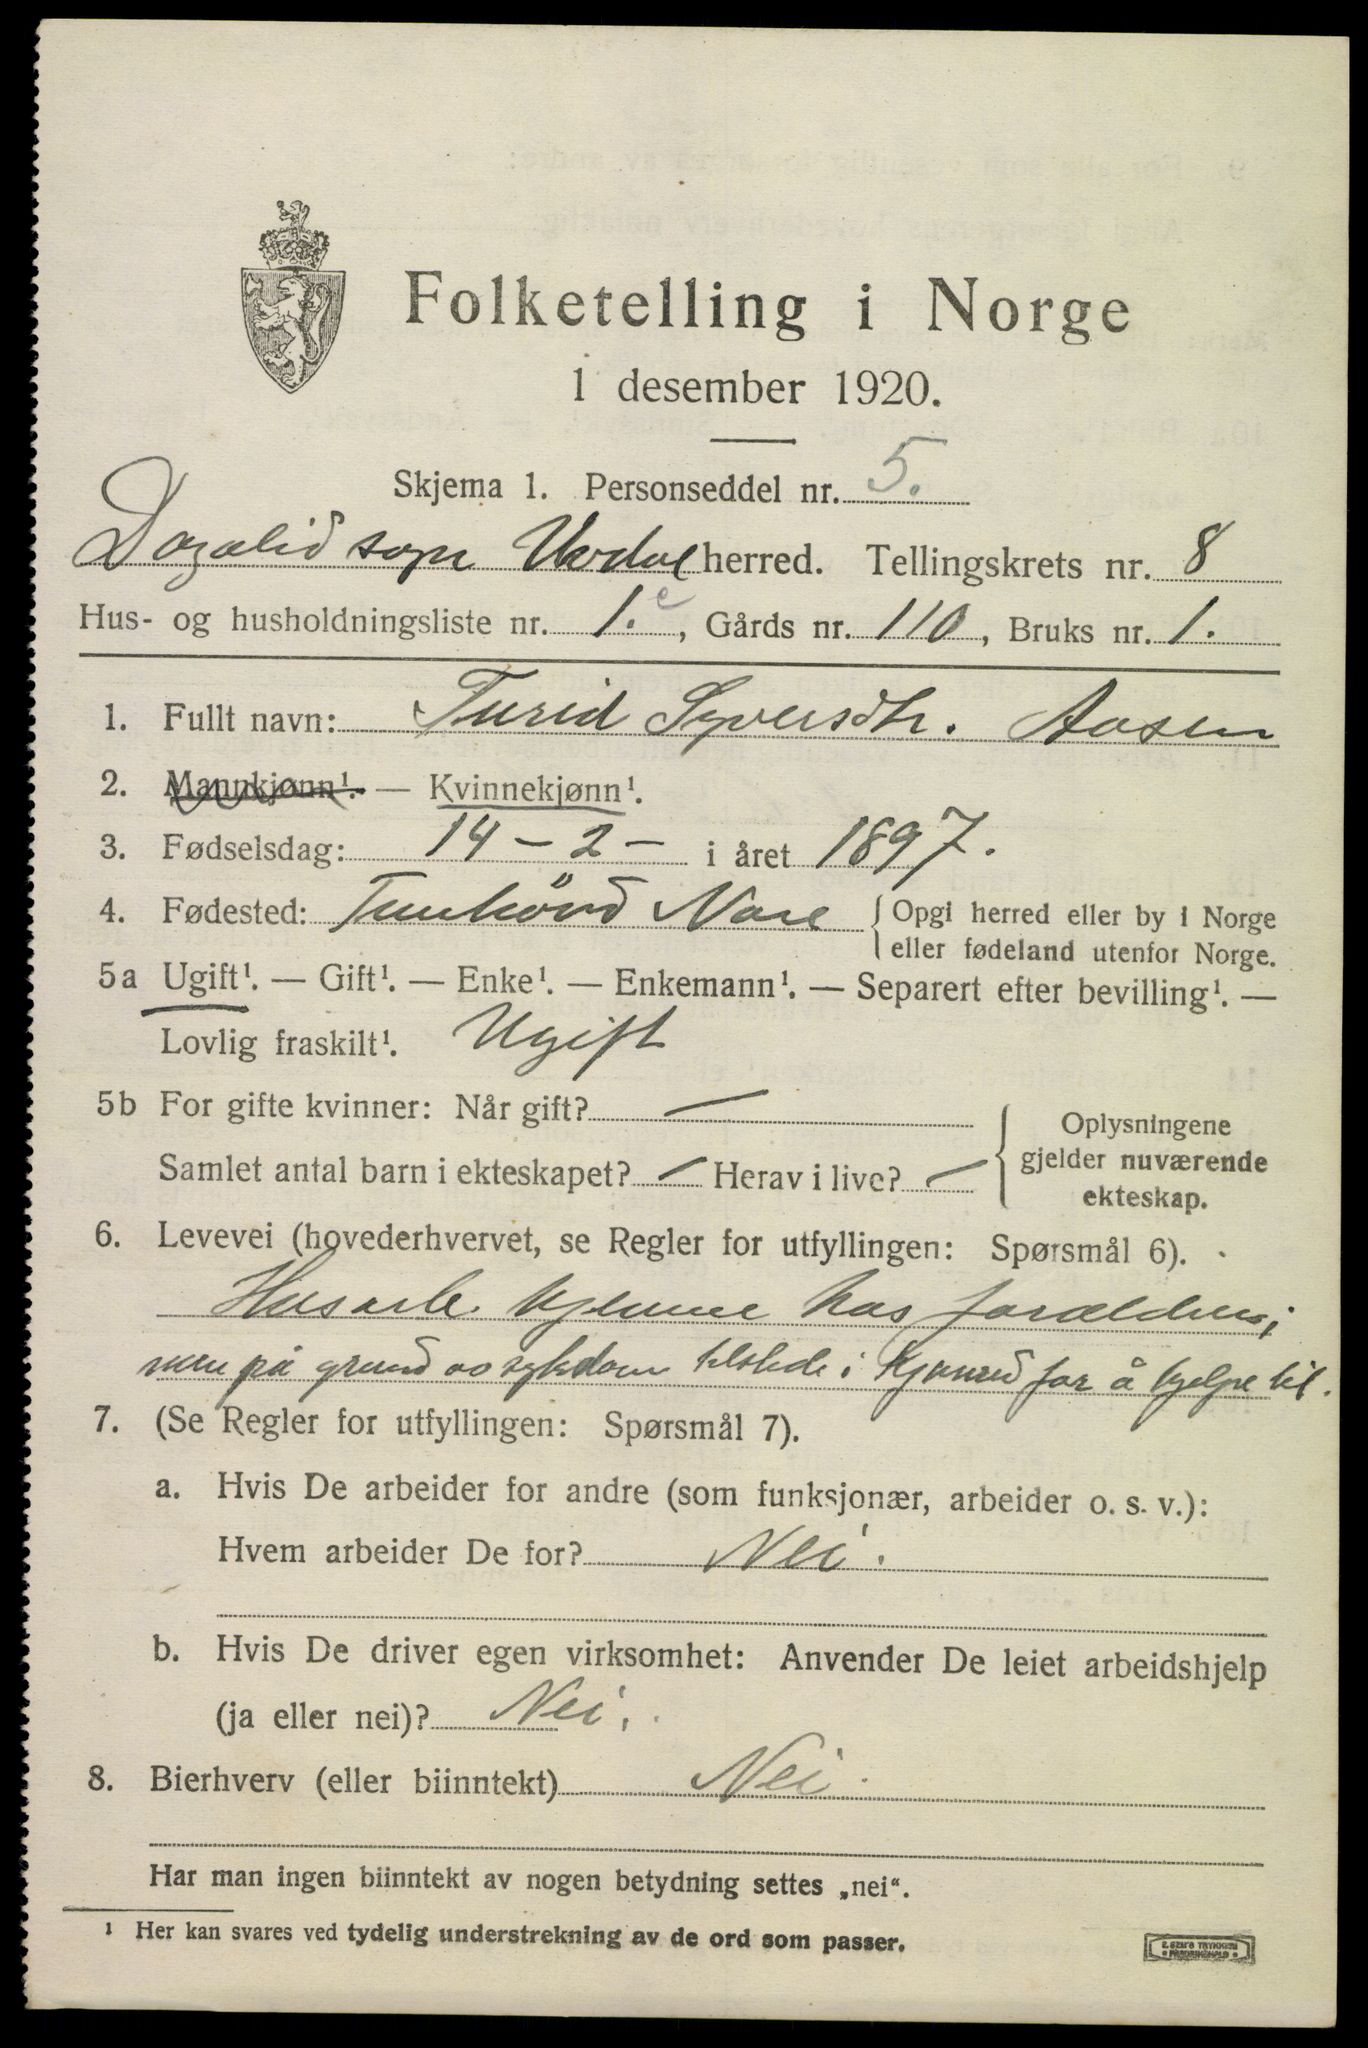 Folketelling i Norge
1 desember 1920.
Skjema 1. Personseddel nr. 5.
Dagalid sogn Uvdal herred. Tellingskrets nr. 8
Hus- og husholdningsliste nr. 1.c, Gårds nr. 110, Bruks nr. 1.
1. Fullt navn: Turid Syversdtr. Aasen
2. Mannkjønn¹. — Kvinnekjønn¹.
3. Fødselsdag: 14 – 2 – i året 1897.
4. Fødested: Tunhövd Nore { Opgi herred eller by i Norge
eller fødeland utenfor Norge.
5a Ugift¹. — Gift¹. — Enke¹. — Enkemann¹. — Separert efter bevilling¹. —
Lovlig fraskilt¹. Ugift
5b For gifte kvinner: Når gift? —
Samlet antal barn i ekteskapet? — Herav i live? —
Oplysningene
gjelder nuværende
ekteskap.
6. Levevei (hovederhvervet, se Regler for utfyllingen: Spørsmål 6).
Husarb. hjemme hos forældrene;
men på grund av sykdom tilstede i for å hjelpe til.
7. (Se Regler for utfyllingen: Spørsmål 7).
a. Hvis De arbeider for andre (som funksjonær, arbeider o. s. v.):
Hvem arbeider De for? Nei.
b. Hvis De driver egen virksomhet: Anvender De leiet arbeidshjelp
(ja eller nei)? Nei.
8. Bierhverv (eller biinntekt) Nei.
Har man ingen biinntekt av nogen betydning settes „nei“.
¹ Her kan svares ved tydelig understrekning av de ord som passer.
E. SEM'S TRYKKERI
FREDRIKSHALD